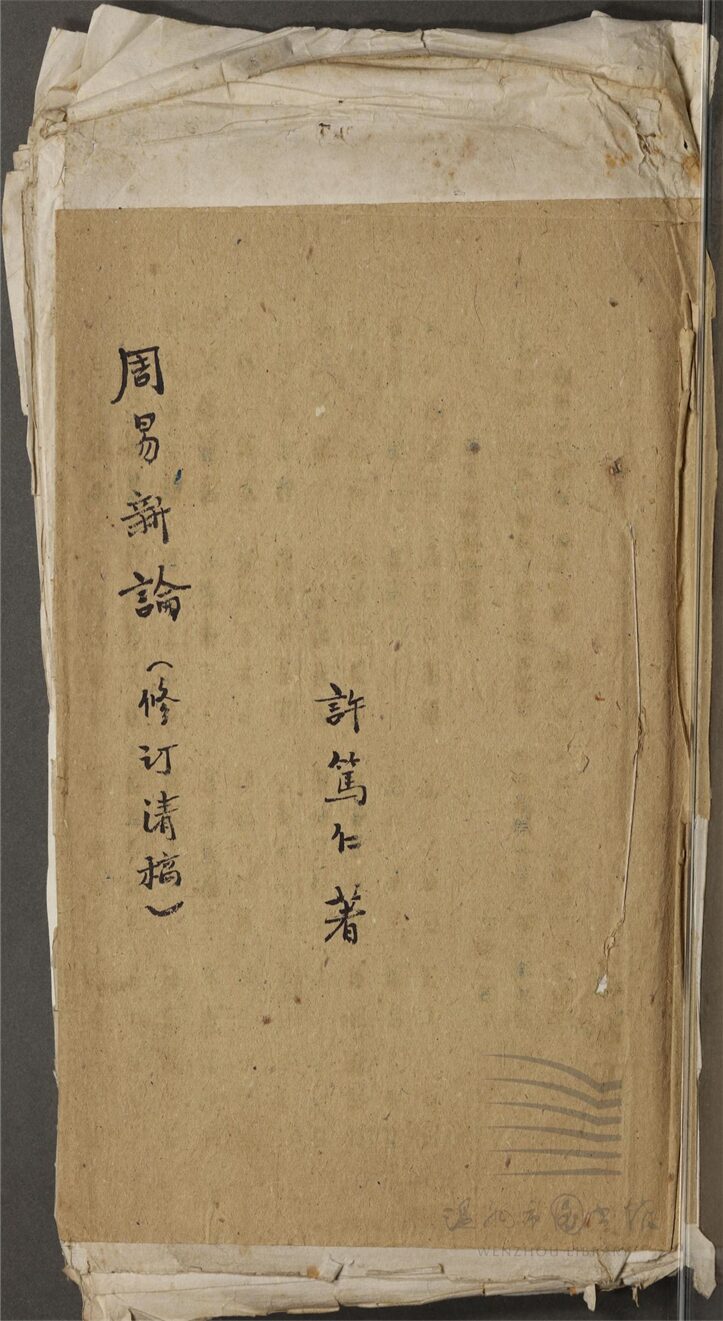 周易新論（修订清稿）
許篤仁著
温州市图书馆
WENZHOU LIBRARY